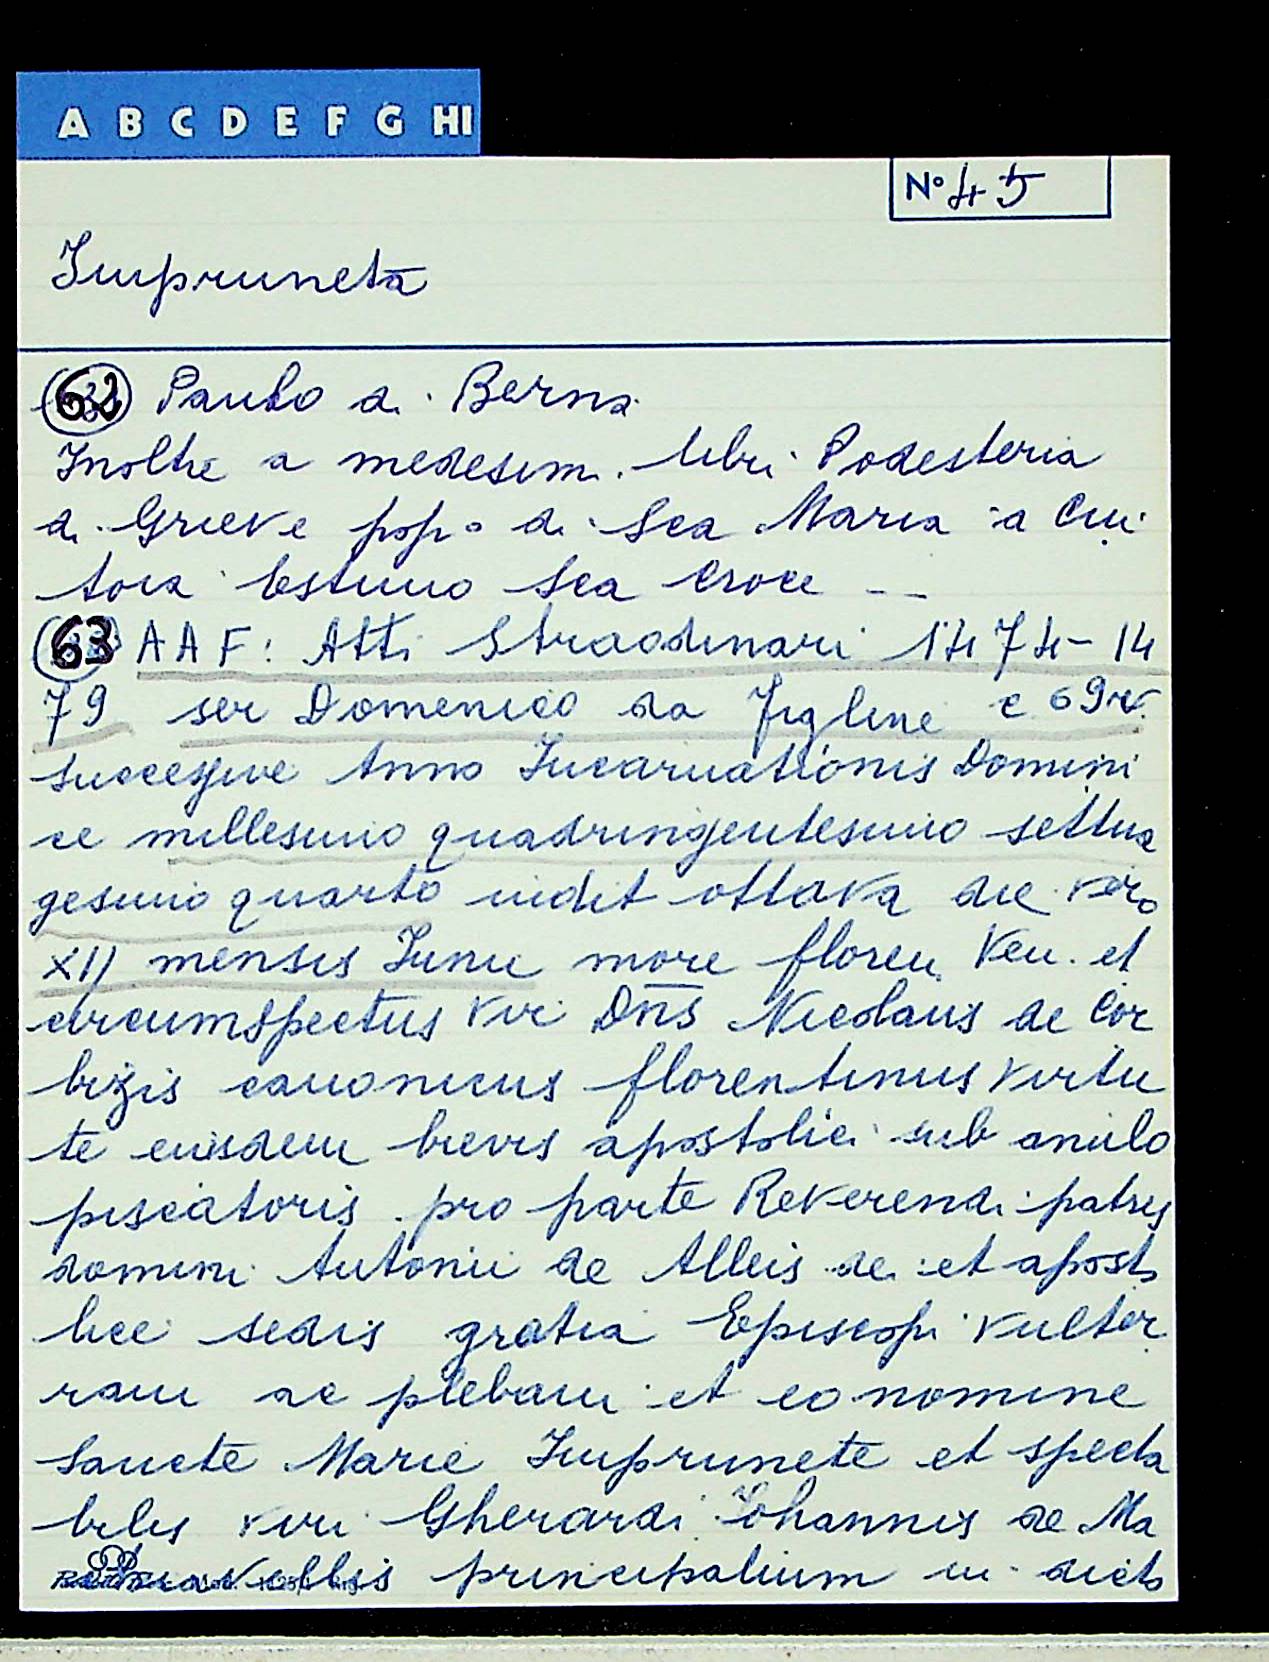 A B C D E F G HI
N° 45
Impruneta
62 Paulo di Berna
Inoltre a medesim. libri Podesteria
di Grieve pop° di Sca Maria a Cin
toia Estimo Sca Croce --
63 AAF: Atti Straodinari 1474-14
79 ser Domenico da Figline c 69r.
successive Anno Incarnationis Domini
ce millesimo quadringentesimo settua
gesimo quarto indit ottava die vero
XII mensis Iunii more floren. Ven. et
circumspectus vir Dns Nicolaus de Cor
bizis canonicus florentinus virtu
te eiusdem brevis apostolici sub anulo
piscatoris pro parte Reverendi patris
domini Antonii de Alleis dei et aposto
lice sedis gratia Episcopi Vulter
rani ac plebani et eo nomine
Sancte Marie Imprunete et specta
biles viri Gherardi Iohannis de Ma
principalium in dicto